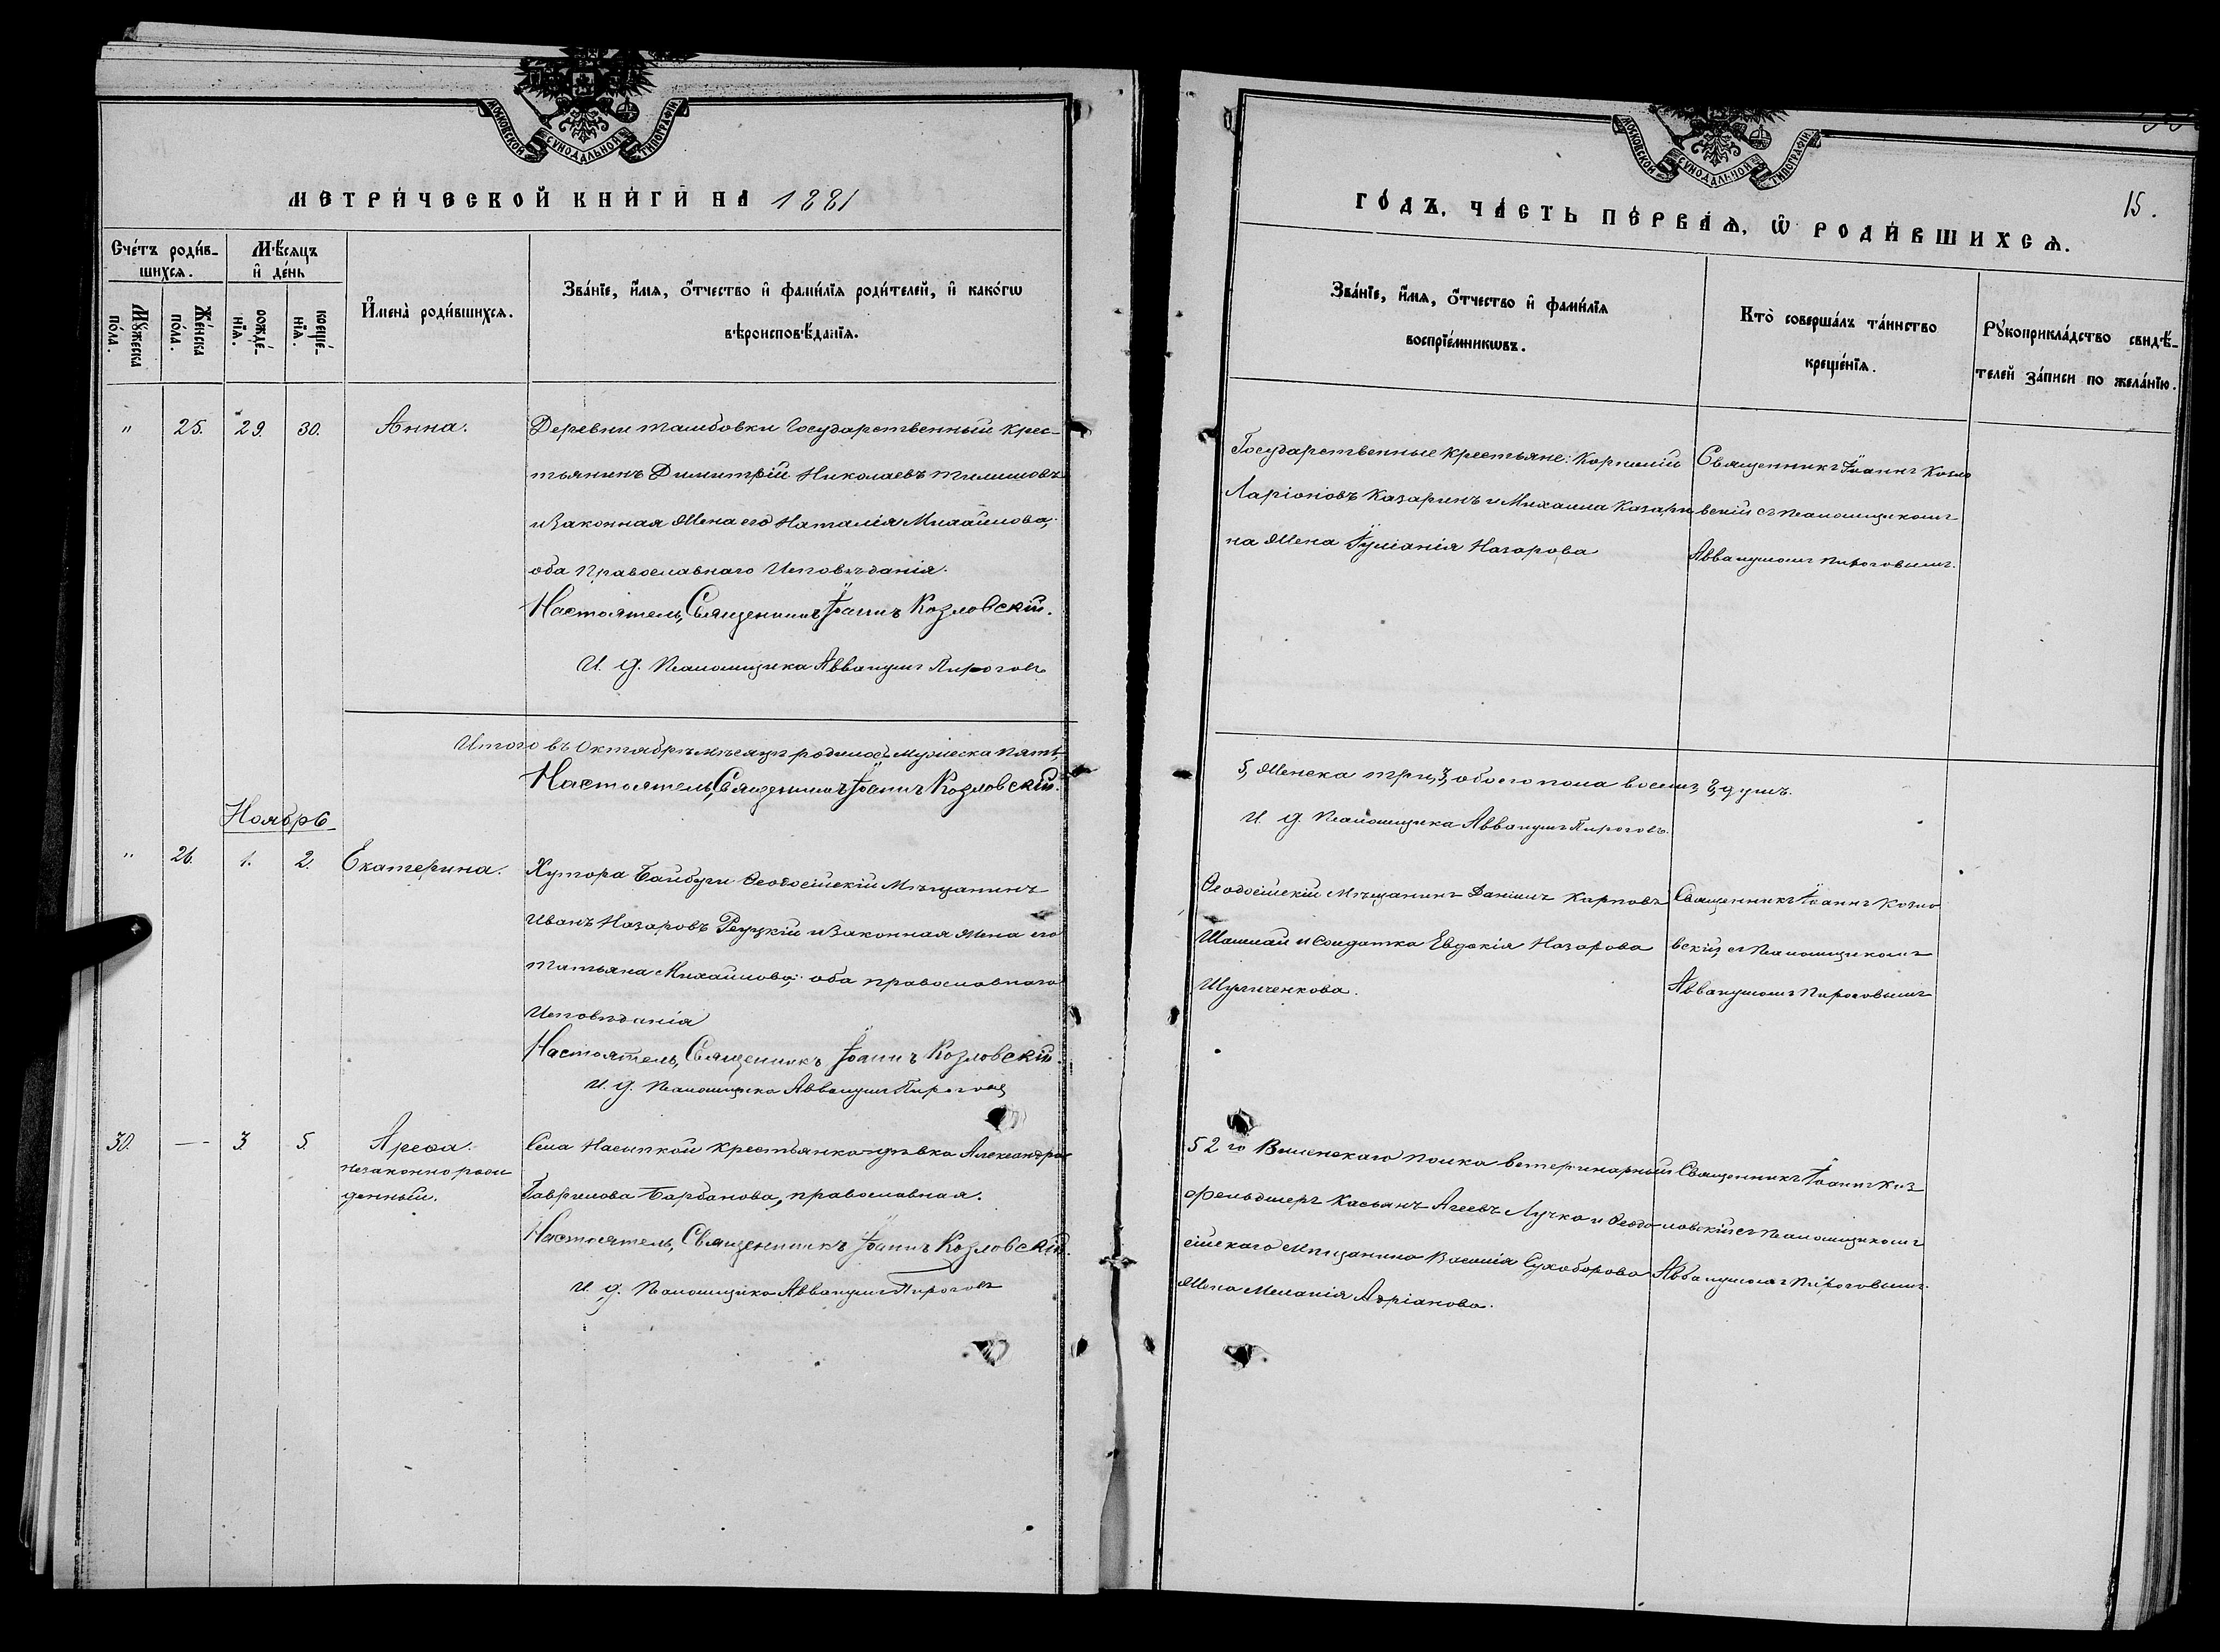 МОСКОВСКОЙ СѴНОДАЛЬНОЙ ТИПОГРАФІИ
МЕТРИ́ЧЕСКОЙ КНИ́ГИ НА 1881
Сче́тъ роди́в-
шихся.
Мꙋжеска по́ла.
Же́нска по́ла.
Мѣ́сяцъ
и҆ де́нь
рожде́-
нїя.
креще́-
нїя.
И҆мена̀ роди́вшихся.
Зва́нїе, и҆́мя, ѻ҆́тчество и҆ фами́лїя роди́телей, и҆ како́гѡ
вѣроисповѣ́данїя.
" 25. 29. 30. Анна.
Деревни Тамбовки Государственный крес-
тьянинъ Димитрій Николаевъ
и законная жена его Наталія Михайлова,
оба Православнаго Исповѣданія.
Настоятель, Священникъ Іоаннъ Козловскій.
И. д. Псаломщика Аввакумъ Пироговъ
Итого въ Октябрѣ мѣсяцѣ родилось мужеска пять,
Настоятель, Священникъ Іоаннъ Козловскій.
Ноябрь
" 26. 1. 2. Екатерина.
Хутора Байбуги Ѳеодосійскій Мѣщанинъ
Иванъ Назаровъ Рецкій и законная жена его
Татьяна Михайлова; оба православнаго
Исповѣданія
Настоятель, Священникъ Іоаннъ Козловскій.
И. д. Псаломщика Аввакумъ Пироговъ
30. — 3. 5. Ареѳа.
незаконно рож
денный.
Села Насыпкой крестьянка дѣвка Александра
Гаврилова Барбанова, православная.
Настоятель, Священникъ Іоаннъ Козловскій.
И. д. Псаломщика Аввакумъ Пироговъ
МОСКОВСКОЙ СѴНОДАЛЬНОЙ ТИПОГРАФІИ
15.
ГО́ДЪ, ЧА́СТЬ ПЕ́РВАЯ, Ѡ҆ РОДИ́ВШИХСЯ.
Зва́нїе, и҆́мя, ѻ҆́тчество и҆ фами́лїя
воспрїе́мникѡвъ.
Кто̀ соверша́лъ та́инство
креще́нїя.
Рꙋкоприкла́дство свидѣ́-
телей за́писи по жела́нїю.
Государственные крестьяне: Корнилій
Ларіоновъ Казаринъ и Михаила Казари
на жена Іуліанія Назарова
Священникъ Іоаннъ Козло
вскій съ псаломщикомъ
Аввакумомъ Пироговымъ.
5, женска три, 3, обоего пола восемь, 8, душъ.
И. д. Псаломщика Аввакумъ Пироговъ.
Ѳеодосійскій Мѣщанинъ Даніилъ Карповъ
и солдатка Евдокія Назарова
Шульченкова.
Священникъ Іоаннъ Козло
вскій, съ псаломщикомъ
Аввакумомъ Пироговымъ
52го Виленскаго полка ветеринарный
фельдшеръ Касьянъ Агеевъ Лучко и Ѳеодо
сійскаго мѣщанина Василія Сухоборова
жена Меланія Адріанова.
Священникъ Іоаннъ Коз
ловскій съ псаломщикомъ
Аввакумомъ Пироговымъ.